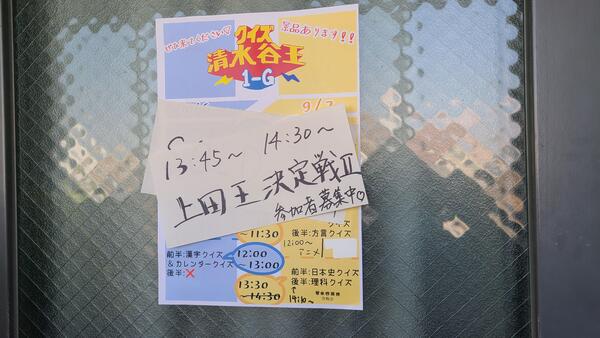 ぜひ来てください♡
景品あります!!
クイズ
清水谷王
1-G
13:45〜 14:30〜
上田王決定戦II
参加者募集中○
〜11:30
後半:方言クイズ
12:00〜
アニメ
前半:漢字クイズ
&カレンダークイズ
後半:❌
12:00
〜13:00
13:30
〜14:30
前半:日本史クイズ
後半:理科クイズ